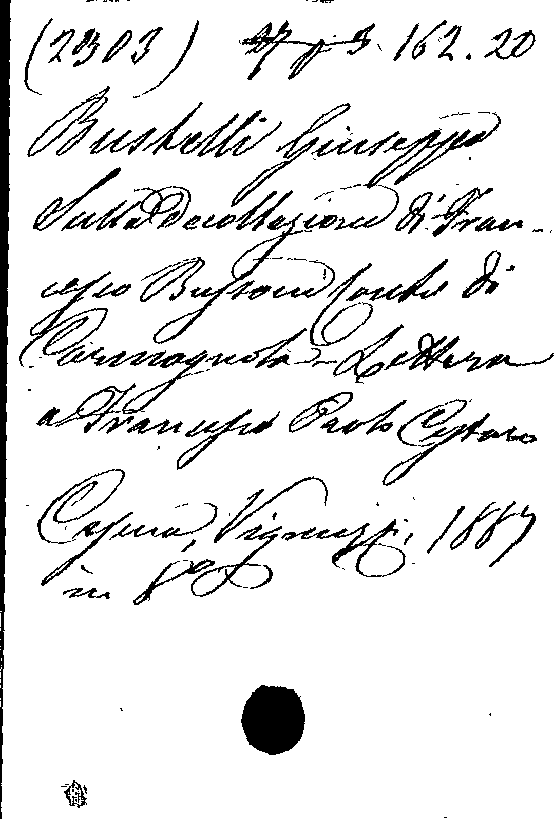 (2303) 162.20
Bustelli Giuseppe
Sulla Decollazione di Fran-
cesco Bussone Conte di
Carmagnola - Lettera
a Francesco Paolo Cestaro
Cesena, Vignuzzi, 1887
in 8º